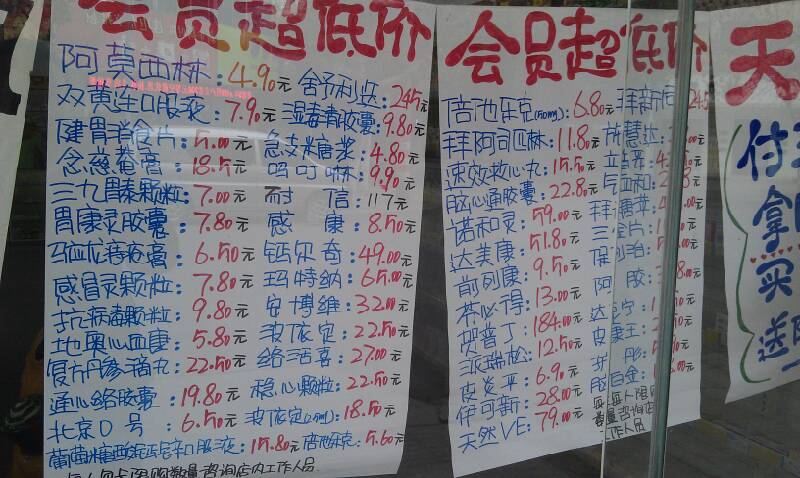 会员超低价
阿莫西林:4.90元 舒利迭:245元
双黄连口服液:7.90元 湿毒清胶囊:9.80元
健胃消食片:5.00元 急支糖浆:4.80元
念慈菴膏:18.5元 吗叮啉:9.90元
三九胃泰颗粒:7.00元 耐信:117元
胃康灵胶囊:7.80元 感康:8.50元
马应龙痔疮膏:6.50元 钙尔奇:49.00元
感冒灵颗粒:7.80元 玛特纳:65.00元
抗病毒颗粒:9.80元 安博维:32.00元
地奥心血康:5.80元 波依定:22.50元
复方丹参滴丸:22.50元 络活喜:27.00元
通心络胶囊:19.80元 稳心颗粒:22.50元
北京0号:6.50元 波依定(2.5mg):18.50元
葡萄糖酸钙锌口服液:15.80元 倍他乐克:5.60元
限购数量咨询店内工作人员
会员超低价
倍他乐克(50mg):6.80元 拜新同:24.5
拜阿司匹林:11.80元
速效救心丸:15.50元
脑心通胶囊:22.80元
诺和灵:59.00元 拜唐苹
达美康:51.80元 三金片
前列康:9.50元
芬必得:13.00元 阿胶
贺普丁:184.00元
派瑞松:12.50元 皮康王
皮炎平:6.90元
伊可新:28.00元 白金
天然VE:79.00元
数量咨询店
工作人员
天
付
拿
买
送